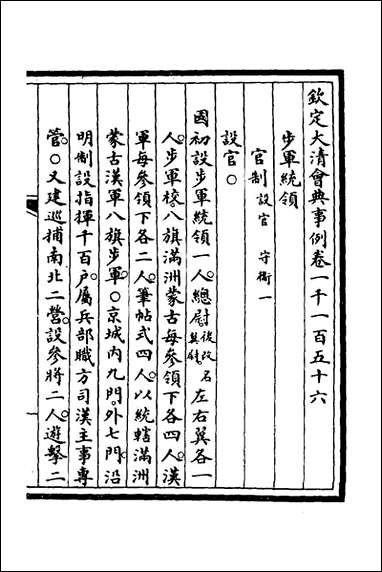 欽定大清會典事例卷一千一百五十六
步軍統領
官制設官 守衛一
設官○
國初設步軍統領一人。總尉後改名翼尉左右翼各一
人。步軍校。八旗滿洲蒙古每參領下各四人。漢
軍每參領下各二人。筆帖式四人。以統轄滿洲
蒙古漢軍八旗步軍。○京城內九門。外七門。沿
明制設指揮千百戶。屬兵部職方司漢主事專
管。○又建巡捕南北二營。設參將二人。遊擊二